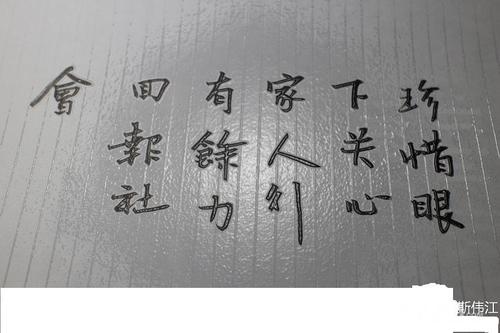 珍惜眼
下关心
家人行
有餘力
回報社
會
斯伟江